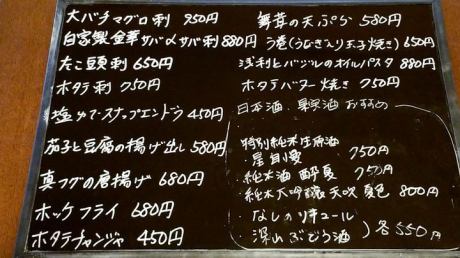 大バチマグロ刺 950円
自家製金華サバ〆サバ刺 880円
たこ頭刺 650円
ホタテ刺 750円
塩ゆでスナップエンドウ 450円
茄子と豆腐の揚げ出し 580円
真フグの唐揚げ 680円
ホッケフライ 680円
ホタテチャンジャ 450円
舞茸の天ぷら 580円
う巻(うなぎ入り玉子焼き) 650円
浅利とバジルのオイルパスタ 880円
ホタテバター焼き 750円
日本酒、果実酒 おすすめ
特別純米生原酒
・星自慢 750円
・純米酒 酔夏 750円
・純米大吟醸 天吹 夏色 800円
・なしのリキュール
・深山ぶどう酒 )各550円